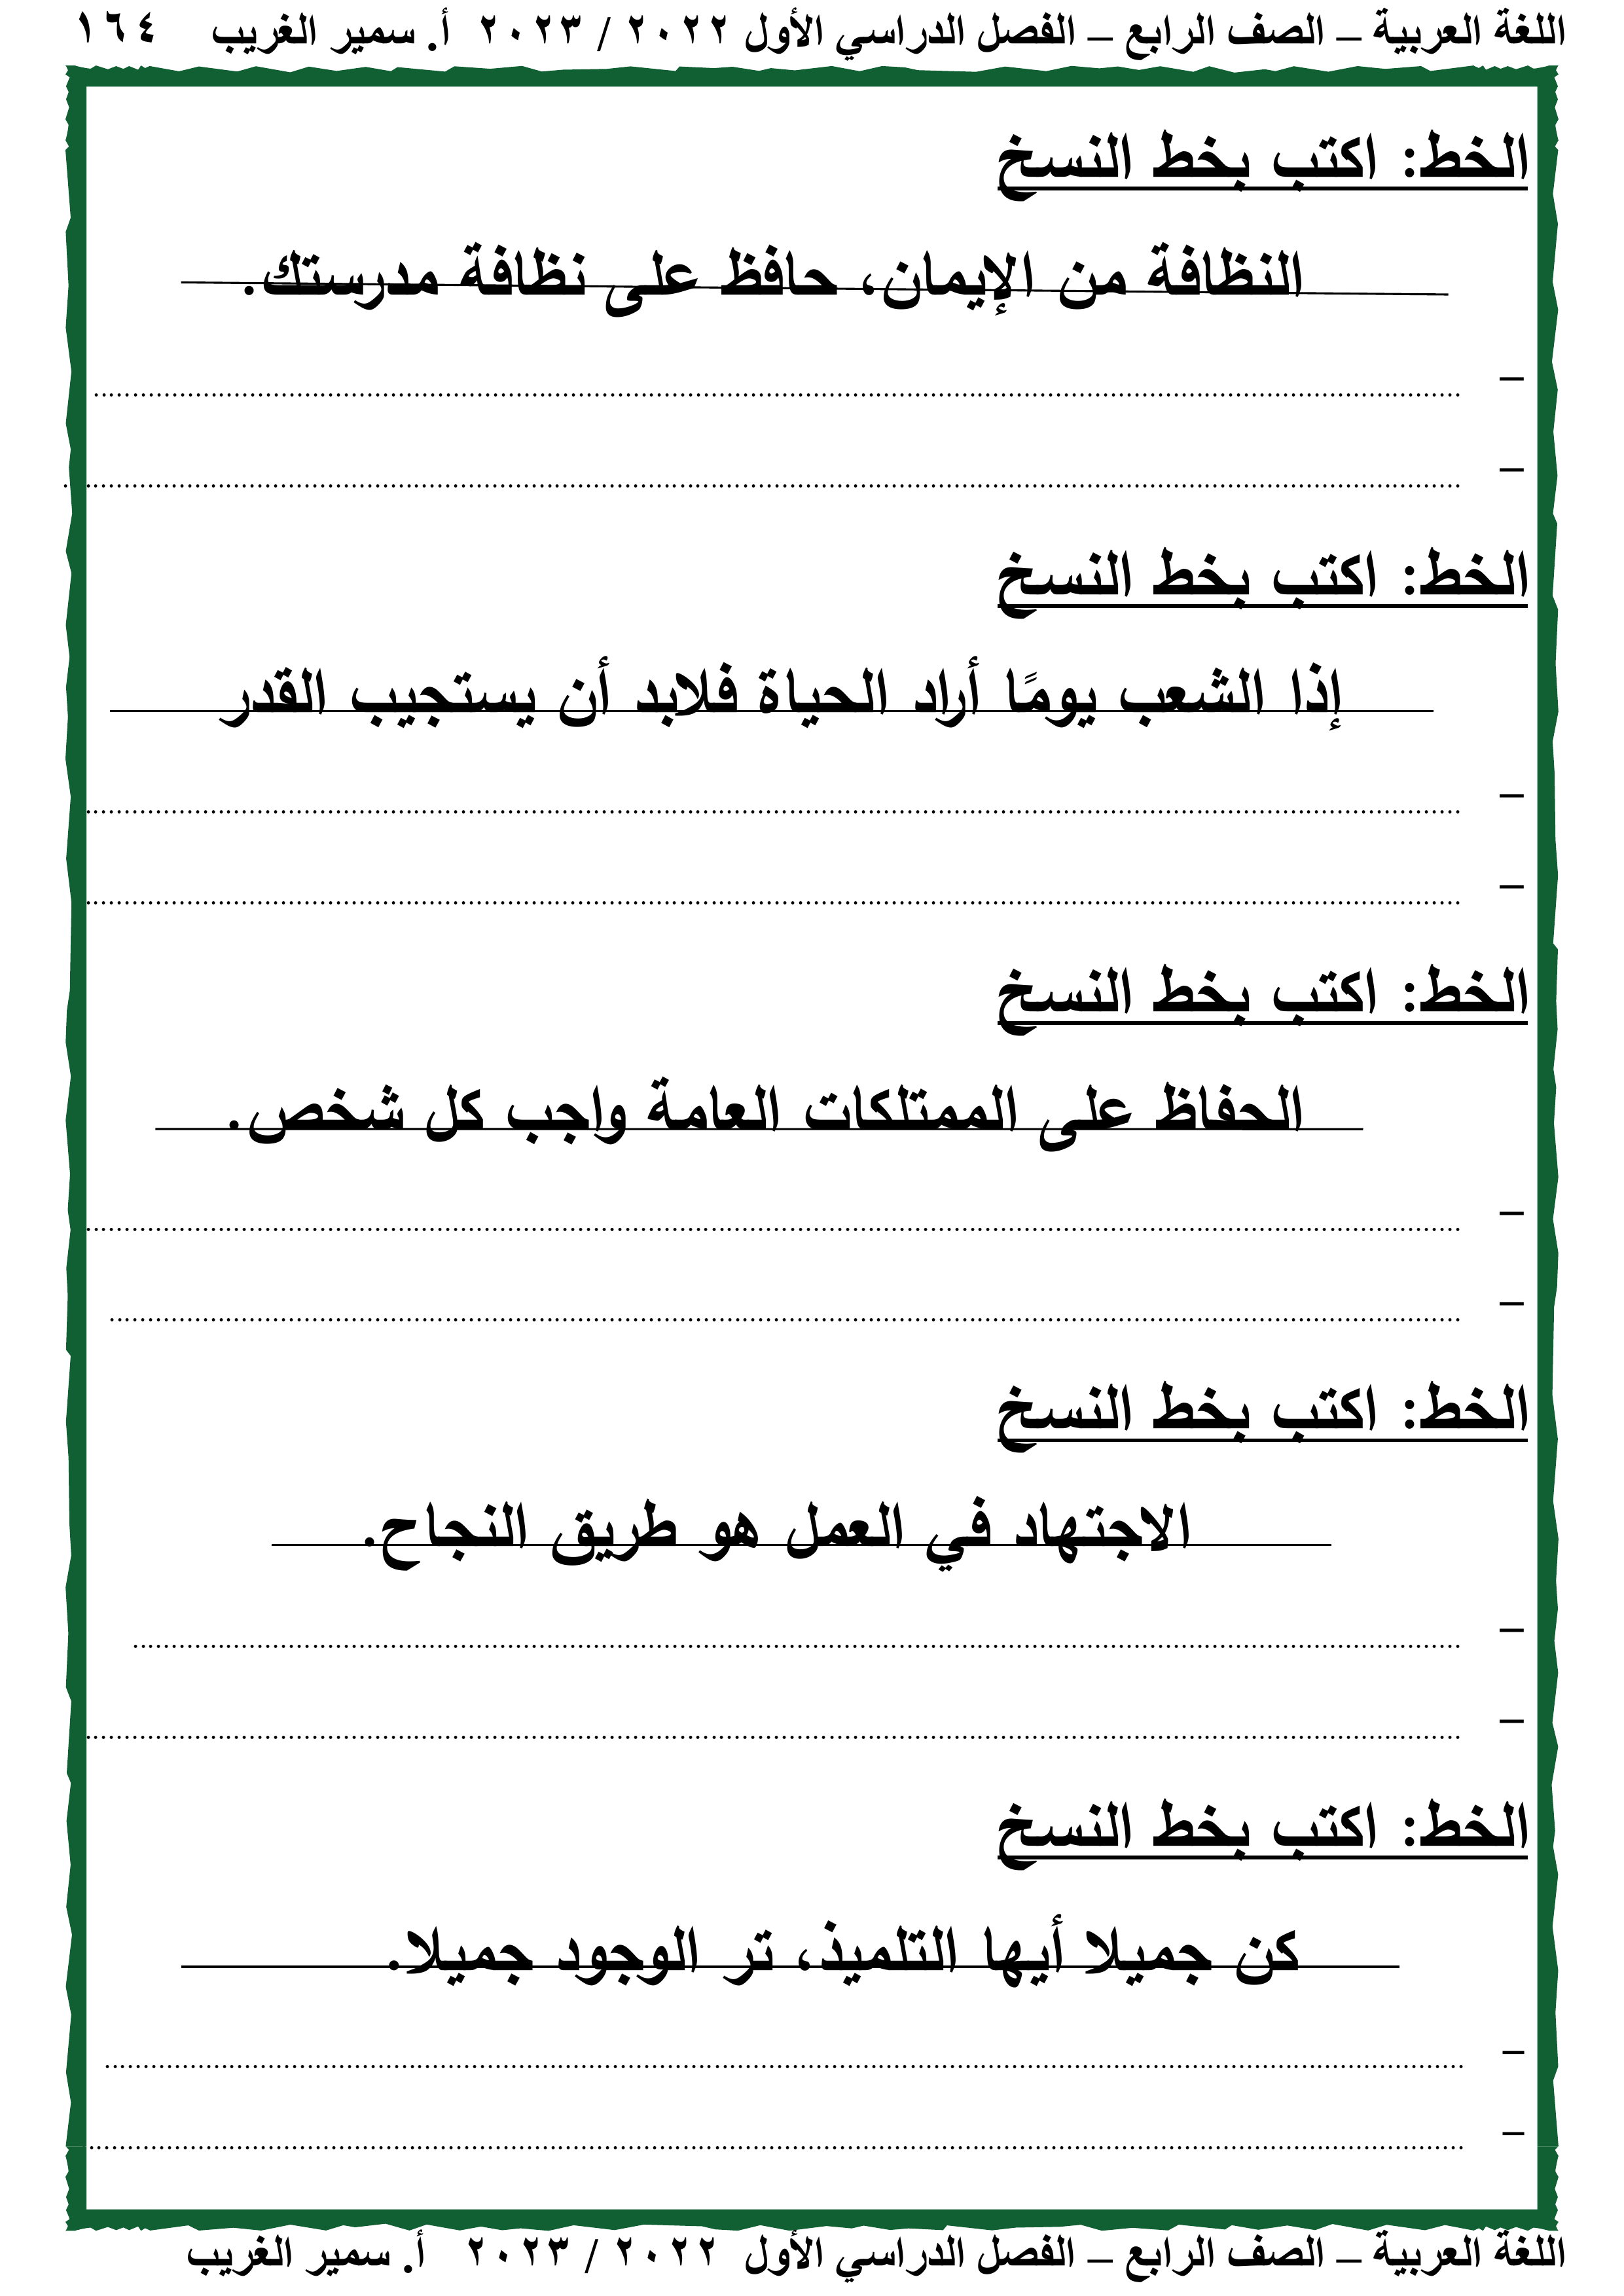 اللغة العربية – الصف الرابع – الفصل الدراسي الأول ٢٠٢٢ / ٢٠٢٣ أ. سمير الغريب ١٦٤
الخط: اكتب بخط النسخ
النظافة من الإيمان، حافظ على نظافة مدرستك.
–
–
الخط: اكتب بخط النسخ
إذا الشعب يومًا أراد الحياة فلابد أن يستجيب القدر
–
–
الخط: اكتب بخط النسخ
الحفاظ على الممتلكات العامة واجب كل شخص.
–
–
الخط: اكتب بخط النسخ
الاجتهاد في العمل هو طريق النجاح.
–
–
الخط: اكتب بخط النسخ
كن جميلا أيها التلميذ، تر الوجود جميلا.
–
–
اللغة العربية – الصف الرابع – الفصل الدراسي الأول ٢٠٢٢ / ٢٠٢٣ أ. سمير الغريب